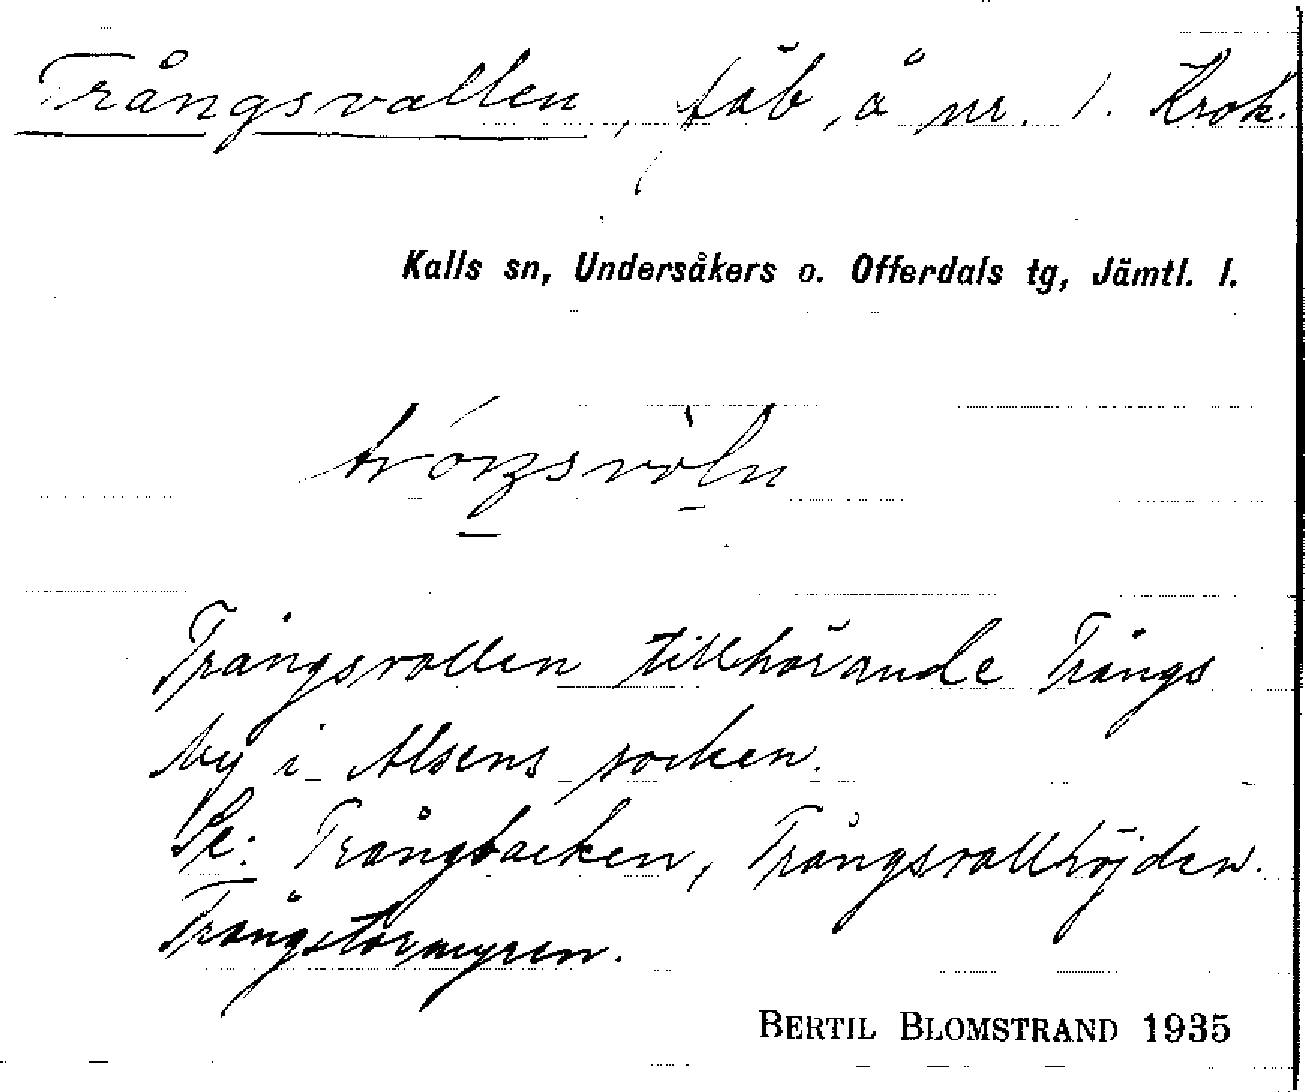 Trångsvallen, fäb, å nr. 1. Krok.
Kalls sn, Undersåkers o. Offerdals tg, Jämtl. l.
Trångsvallen tillhörande Trångs
by i Alsens socken.
Se: Trångbacken, Trångsvallhöjden.
Trångstormyren.
BERTIL BLOMSTRAND 1935